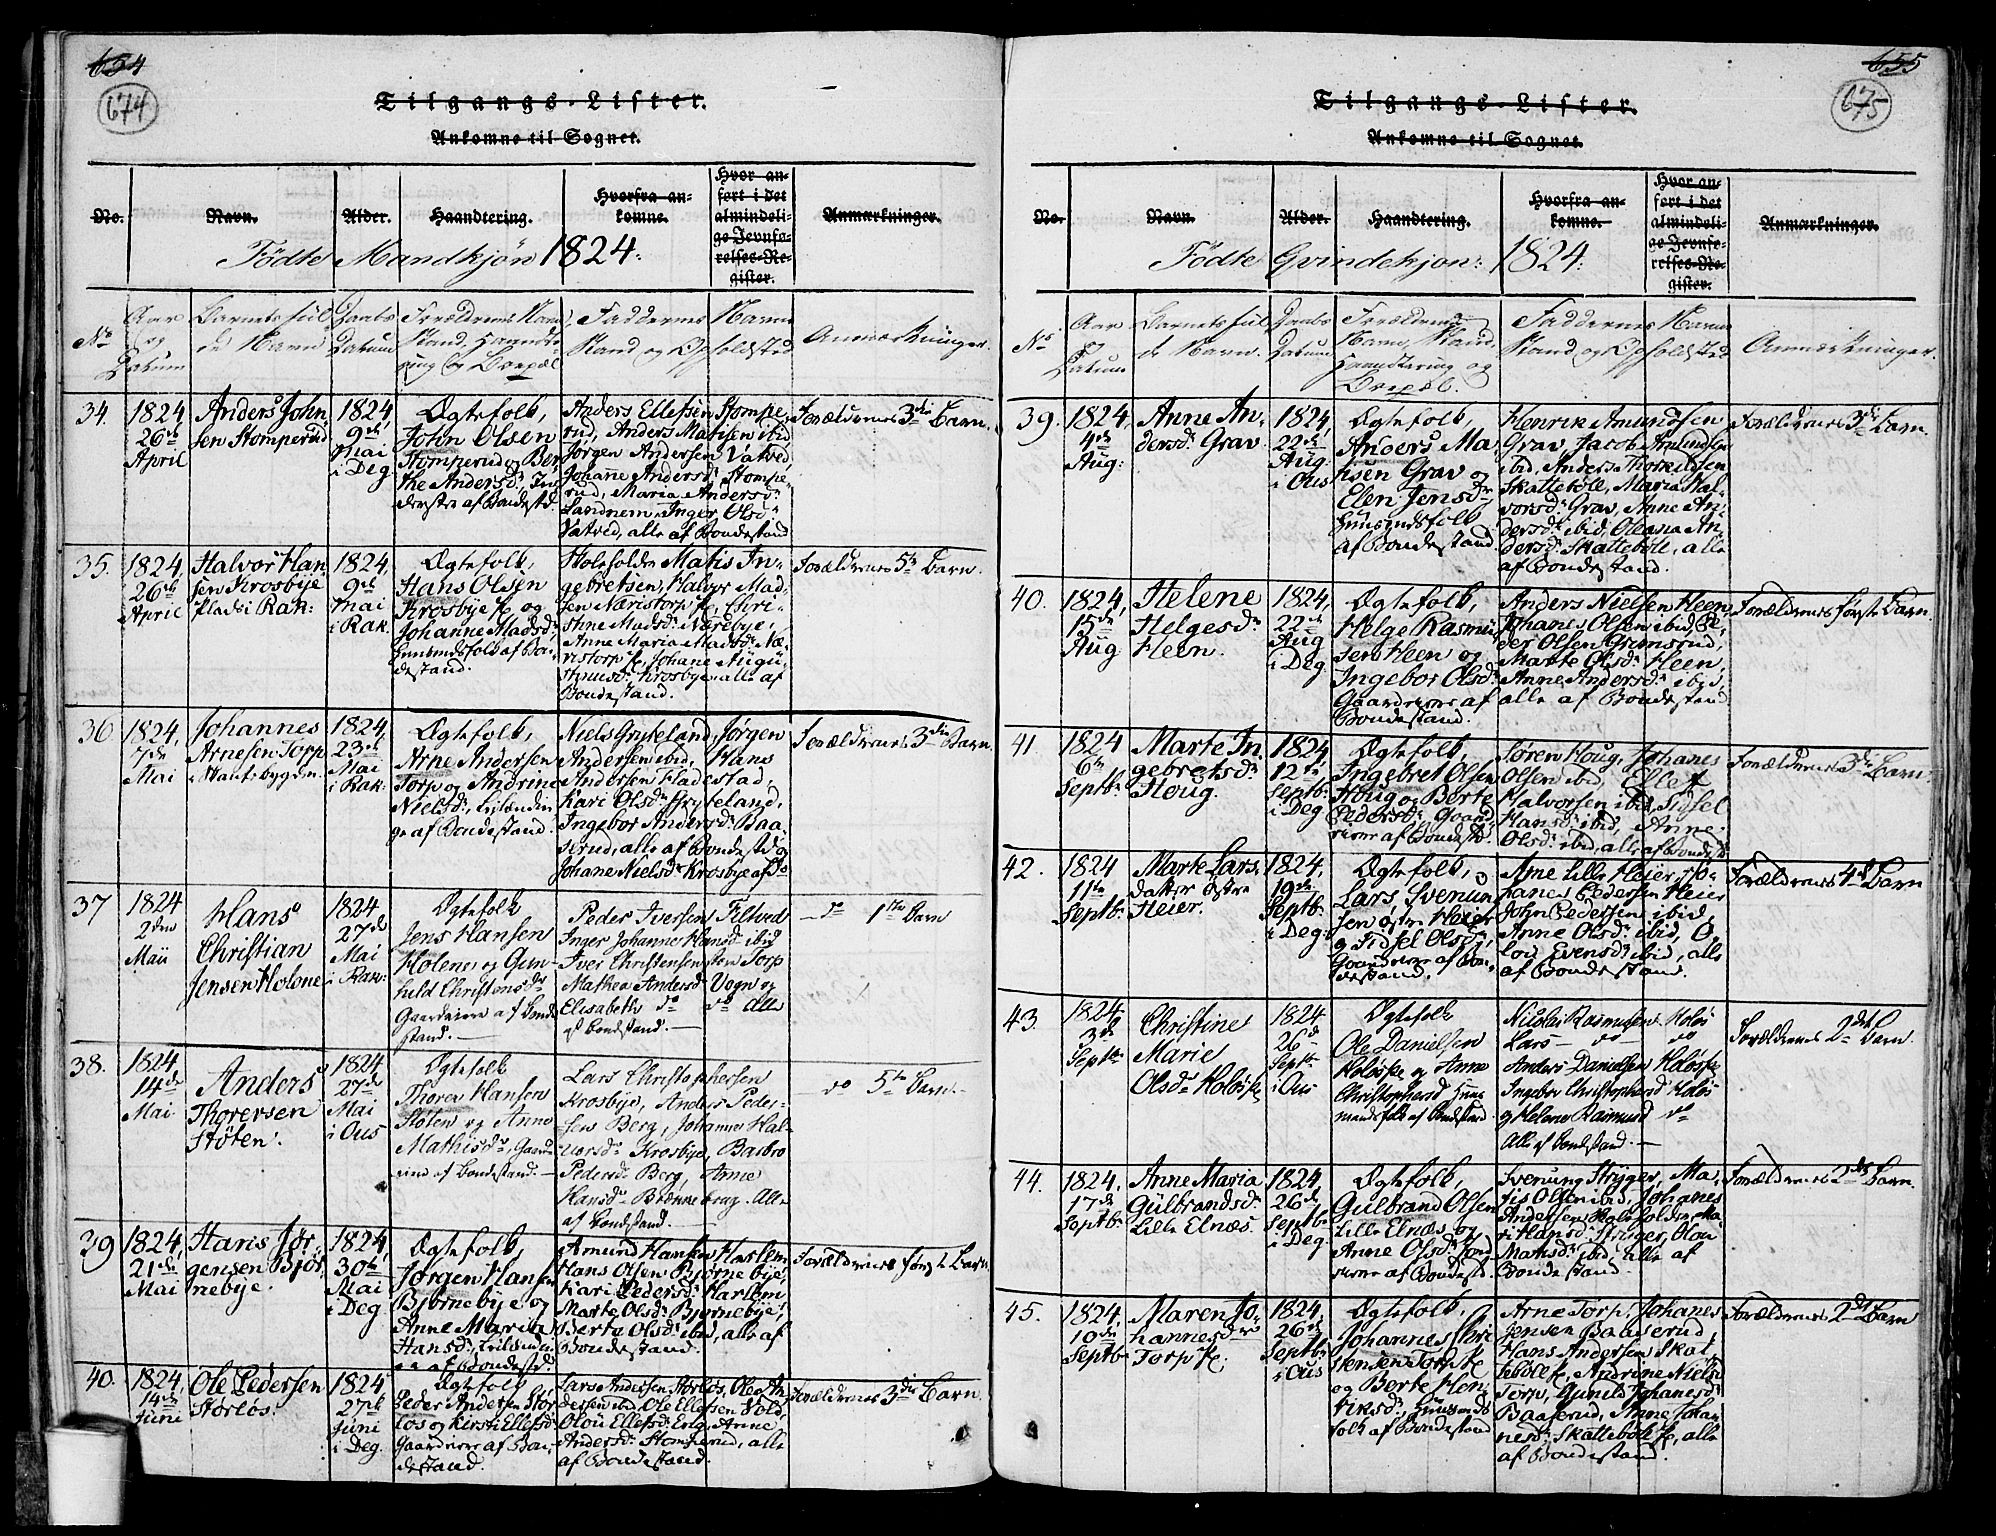 654
674
Tilgangs-Lister.
Ankomne til Sognet.
No.
Navn.
Alder.
Haandtering.
Hvorfra an-
komne.
Hvor an-
ført i det
almindeli-
ge Jevnfø-
relses-Re-
gister.
Anmærkninger.
Födte Mandkjön 1824:
No
Aar
og
Datum
Barnets ful
de Navn
Daabs
Datum
Forældrenes Navn,
Stand, Haandte
ring og Bopæl
Faddernes Navne
Stand og Opholdsted
Anmærkninger.
34.
1824
26de
April
Anders John
sen Stomperud
1824,
9de
Mai
i Deg
Ægtefolk,
John Olsen
Stomperud og Ber
the Andersd:, In
derster af Bondestd
Anders Ellefsen Stompe
rud, Anders Matisen ibid
Jörgen Andersen Vatved,
Johane Andersd: Stompe
rud, Maria Andersd:
Sandnem, Inger Olsd:
Vatved, alle af Bondestand
Forældrenes 3die Barn.
35.
1824,
26de
April
Halvor Han
sen Krosbye
plads i Rak:
1824,
9de
Mai
i Rak.
Ægtefolk,
Hans Olsen
Krosbye og
Johanne Madsd:
Huusmdsfolk af Bon
destand.
Skoleholder Matis In
gebretsen, Halvor Mad
sen Næristorp, Chri
stine Madsd: Nærebye,
Anne Maria Madsd: Næ
ristorp, Johane Augu
stinusd: Krosbye alle af
Bondestand.
Forældrenes 5te Barn.
36
1824,
7de
Mai
Johannes
Arnesen Torp
i Stantsbygden.
1824,
23de
Mai
i Rak:
Ægtefolk,
Arne Andersen
Torp og Andrine
Nielsd:, Leilændin
ge af Bondestand.
Niels Gryteland, Jörgen
Andersen ibid, Hans
Andersen Fladestad,
Kari Olsd: Gryteland,
Ingebor Andersd: Baa
serud, alle af Bondestd og
Johane Nielsd: Krosbye af Do
Forældrenes 3die Barn.
37
1824
2den
Maii
Hans
Christian
Jensen Holene
1824
27de
Mai
i Rak:
Ægtefolk
Jens Hansen
Holene og Gun
hild Christensdr
Gaardeiere af Bonde
stand.
Peder Iversen Filtved
Inger Johanne Hansd ibid
Iver Christensen sten Torp
Mathea Andersd Vogn og
Elisabeth do do Alle
af bondestand.
do 1ste Barn
38.
1824
14de
Mai
Anders
Thoresen
Støten.
1824
27de
Mai
i Ous
Ægtefolk
Thore Hansen
Støten og Anne
Mathisdr, Gaard
eiere af Bondestand.
Lars Christophersen
Krosbye, Anders Peder
sen Berg, Johanne Hal
vorsdr Krosbye, Barbro
Pedersd: Berg, Anne
Hansdr Brennebraq. Alle
af Bondestand.
do 5te Barn.
39
1824,
21de
Mai
Hans Jör
gensen Björ
nebye.
1824,
30te
Mai
i Deg
Ægtefolk,
Jörgen Hansen
Bjørnebye og
Anne Maria
Hansd:, Leilændin
ge af Bondestd.
Amund Hansen Haslem
Hans Olsen Bjørnebye,
Kari Pedersd: Harlem
Marte Olsd: Bjørnebye,
Berte Olsd: ibid, alle af
Bondestand.
Forældrenes første Barn.
40.
1824,
14de
Juni
Ole Pedersen
Storløs.
1824
27de
Juni
i Deg.
Ægtefolk
Peder Andersen Stor
løs og Kirsti Ellefsd
Gaardeiere af Bon
destand.
Lars Andersen Storløs, Ole An
dersen ibid, Ole Ellefsen Vold,
Olou Ellefsd: Eng, Anne
Andersd: Stomperud, alle
af Bondestand.
Forældrenes 3die Barn.
655
675
Tilgangs-Lister.
Ankomne til Sognet.
No.
Navn.
Alder.
Haandtering.
Hvorfra an-
komne.
Hvor an-
ført i det
almindeli-
ge Jevnfø-
relses-Re-
gister.
Anmærkninger.
Födte Qvindekjön: 1824:
No
Aar
og
Datum
Barnets ful
de Navn.
Daabs
Datum
Forældrenes
Navn, Stand,
Haandtering og
Bopæl.
Faddernes Navne
Stand og Opholdsted
Anmærkninger.
39.
1824,
4de
Aug:
Anne An
dersd: Grav
1824,
22de
Aug:
i Ous
Ægtefolk,
Anders Ma
tisen Grav og
Elen Jensdr
Huusmdsfolk
af Bondestand
Henrik Amundsen
Grav, Jacob Amundsen
ibid, Anders Thorkildsen
Skatteböle, Maria Hal
vorsd: Grav, Anne An
dersd: ibid, Oleana An
dersd: Skatteböle, alle
af Bondestand.
Forældrenes 3die Barn.
40.
1824,
15de
Aug
Helene
Helgesd:
Heen.
1824,
22de
Aug
i Deg
Ægtefolk,
Helge Rasmus
sen Heen og
Ingebor Olsd:
Gaardeiere af
Bondestand.
Anders Nielsen Heen
Johanes Olsen ibid, Pe
der Olsen Grimsrud,
Marte Olsd: Heen,
Anne Andersd: ibid,
alle af Bondestand
Forældrenes første Barn.
41.
1824
6te
Septb:
Marte In
gebretsd:
Houg.
1824,
12te
Septb:
i Deg
Ægtefolk,
Ingebret Olsen
Houg og Berte
Pedersd: Gaard
eiere af Bondestd:
Sören Houg, Johanes
Olsen ibid, Ellef
Halvorsen ibid, Sidsel
Hansd: ibid, Anne
Olsd: ibid, alle af Bondestd
Forældrenes 3die Barn.
42.
1824
11te
Septb:
Marte Lars
datter østre
Heier.
1824,
19de
Septb:
i Deg:
Ægtefolk,
Lars Svenun
sen østre Heier
og Sidsel Olsd:,
Gaardeiere af Bon
destand.
Arne Lille Heier, Jo
hanes Pedersen Heier
John Pedersen ibid
Anne Olsd: ibid, O
lou Evensd: ibid, alle
af Bondestand.
Forældrenes 4de Barn
43.
1824
3de
Septb
Christine
Marie
Olsdr Holøs
1824
26de
Septb
i Ous
Ægtefolk
Ole Danielsen
Holøs og Anne
Christophersd Huus
mandsfolk af bondestand
Nicolai Rasmussen Holøs
Lars do do
Anders Danielsen Holøs
Ingebor Christophersd Holøs
og Helene Rasmusd do
Alle af bondestand.
Forældrenes 2det Barn.
44.
1824,
17de
Septb:
Anne Maria
Gulbrandsd:
Lille Elnæs.
1824,
26de
Septb:
i Deg
Ægtefolk,
Gulbrand Olsen
Lille Elnæs og
Anne Olsd: Jord
eiere af Bondestd.
Svenung Stryger, Ma
tis Olsen ibid, Johanes
Andersen Skoleholder, Ma
ri Hansd: Stryger, Olou
Matisd: ibid, alle af
Bondestand.
Forældrenes 2det Barn.
45.
1824,
10de
Septb
Maren Jo
hannesdr
Torp
1824,
26de
Septb
i Ous
Ægtefolk,
Johannes Chri
stensen Torp
og Berte Hen
riksd:, Huusmds
folk af Bondestand
Arne Torp, Johanes
Jensen Baaserud,
Hans Andersen Skat
teböle, Andrine Nielsd
Torp, Gunild Johanesd:
Baaserud, Anne Johan
nesd: Skatteböle, alle
af Bondestand.
Forældrenes 2det Barn